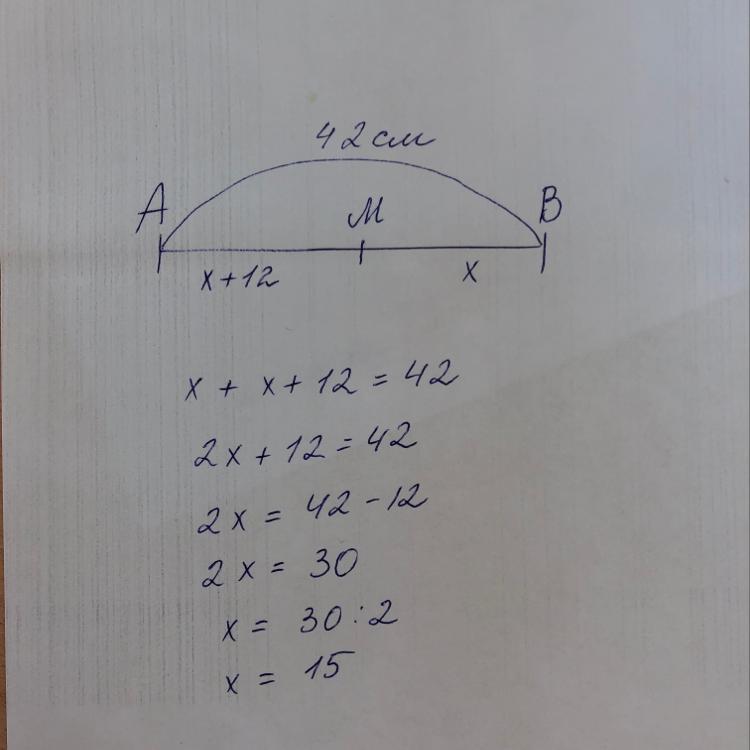 42 см
A M B
x+12 x
x + x + 12 = 42
2x + 12 = 42
2x = 42 - 12
2x = 30
x = 30 : 2
x = 15